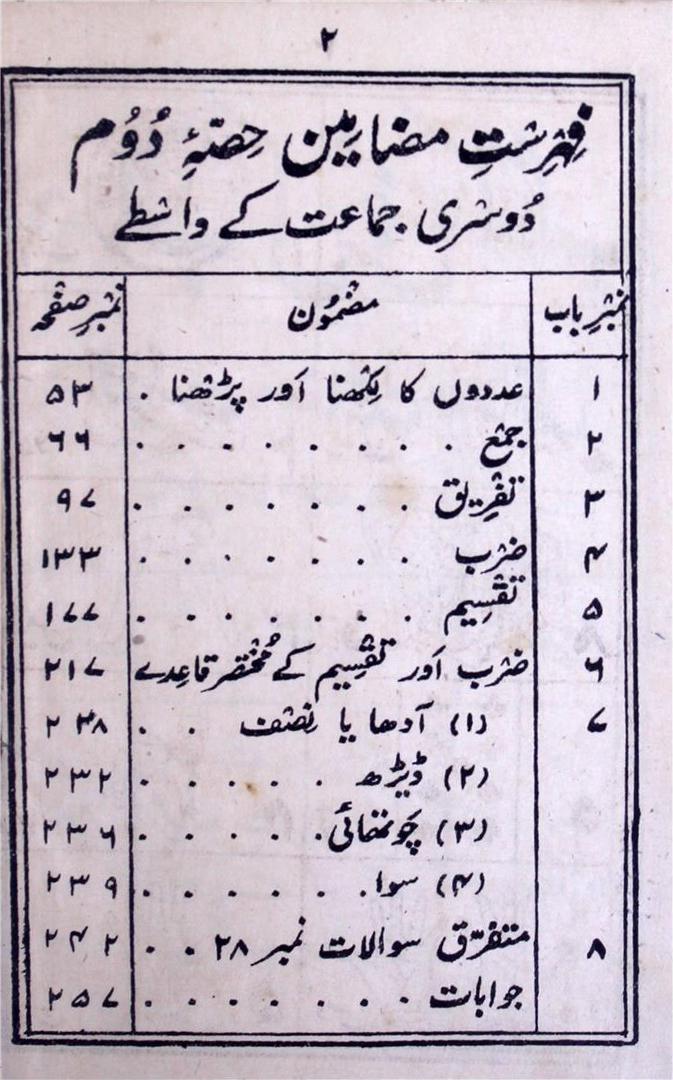 ۲
فہرستِ مضامین حصّۂ دُوُم
دُوسری جماعت کے واسطے
نمبرِ باب مضمُون نمبرِ صفحہ
۱ عددوں کا لِکھنا اَور پڑھنا . ۵۳
۲ جمع . . . . . . . . ۶۶
۳ تفرِیق . . . . . . . ۹۷
۴ ضرب . . . . . . . ۱۳۳
۵ تقسِیم . . . . . . . ۱۷۷
۶ ضرب اَور تقسِیم کے مُختصر قاعِدے ۲۱۷
۷ (۱) آدھا یا نِصف . . ۲۳۸
(۲) ڈیڑھ . . . . . ۲۳۲
(۳) چَوتھائی . . . . . ۲۳۶
(۴) سوا . . . . . . ۲۳۹
۸ متفرّق سوالات نمبر ۲۸ . . ۲۴۲
جوابات . . . . . . . ۲۵۷